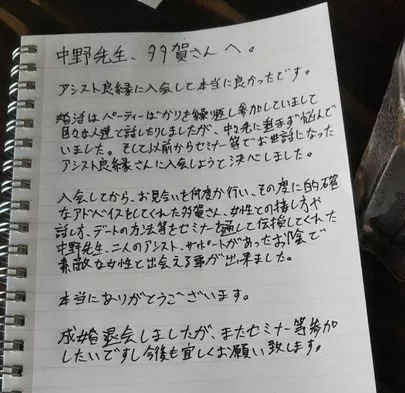 中野先生、多賀さんへ。
アシスト良縁に入会して本当に良かったです。
婚活はパーティーばかりを繰返し参加していまして
色々な人達と話したりしましたが、中々先に進まず悩んで
いました。そして以前からセミナー等でお世話になった
アシスト良縁さんに入会しようと決めました。
入会してから、お見合いも何度か行い、その度に的確
なアドバイスもしてくれた多賀さん、女性との接し方や
話し方、デートの方法等をセミナーを通して伝授してくれた
中野先生、二人のアシスト、サポートがあったお陰で
素敵な女性と出会える事が出来ました。
本当にありがとうございます。
成婚退会しましたが、またセミナー等参加
したいですし今後も宜しくお願い致します。